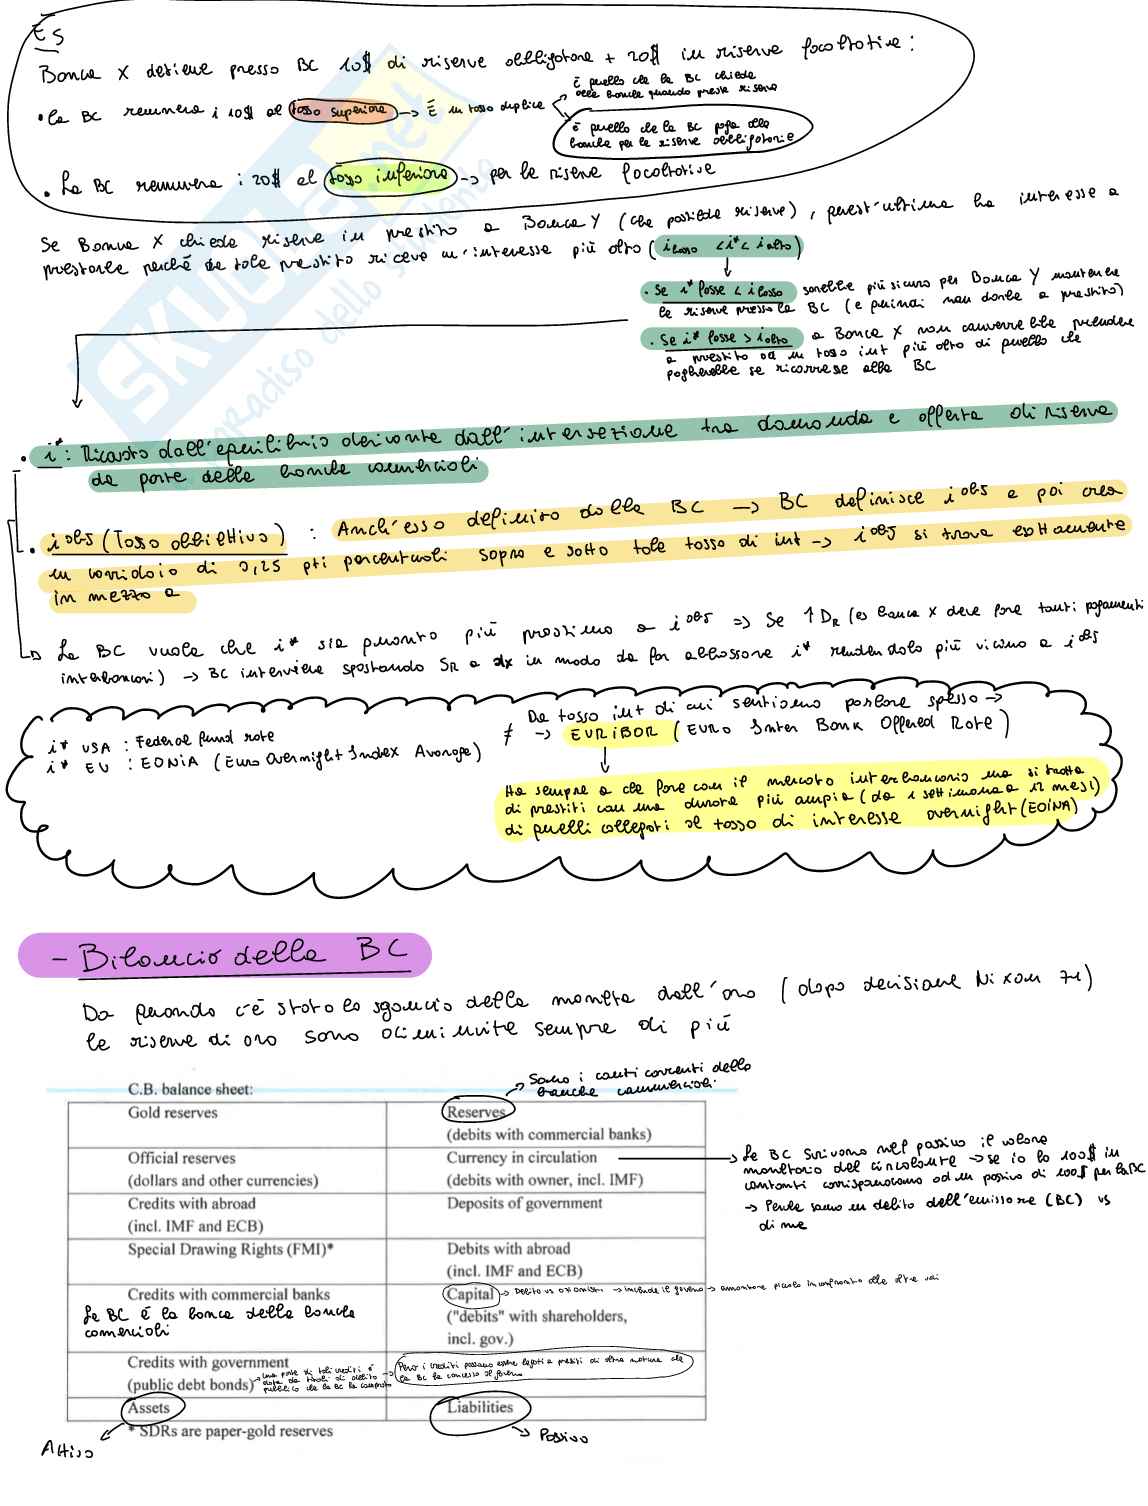 ES
Banca X detiene presso BC 10$ di riserve obbligatorie + 20$ in riserve facoltative:
• la BC remunera i 10$ al tasso superiore → È un tasso duplice
è quello che la BC chiede
alle banche quando presta riserve
è quello che la BC paga alle
banche per le riserve obbligatorie
• La BC remunera i 20$ al tasso inferiore → per le riserve facoltative
Se Banca X chiede riserve in prestito a Banca Y (che possiede riserve), quest'ultima ha interesse a
prestarle perché da tale prestito riceve un'interesse più alto (i basso < i* < i alto)
• Se i* fosse < i basso sarebbe più sicuro per Banca Y mantenere
le riserve presso la BC (e quindi non darle a prestito)
• Se i* fosse > i alto a Banca X non converrebbe prendere
a prestito ad un tasso int più alto di quello che
pagherebbe se ricorresse alla BC
• i*: Ricavato dall'equilibrio derivante dall'intersezione tra domanda e offerta di riserve
da parte delle banche commerciali
• i obj (Tasso obbiettivo) : Anch'esso definito dalla BC → BC definisce i obj e poi crea
un corridoio di 0,25 pti percentuali sopra e sotto tale tasso di int → i obj si trova esttamente
in mezzo a
La BC vuole che i* sia quanto più prossimo a i obj ⇒ Se ↑ DR (es banca X deve fare tanti pagamenti
interbancari) → BC interviene spostando SR a dx in modo da far abbassare i* rendendolo più vicino a i obj
i* USA : Federal fund rate
i* EU : EONIA (Euro Overnight Index Average)
≠ Da tasso int di cui sentiamo parlare spesso →
→ EURIBOR (EURO Inter Bank Offered Rate)
Ha sempre a che fare con il mercato interbancario ma si tratta
di prestiti con una durata più ampia (da 1 settimana a 12 mesi)
di quelli collegati al tasso di interesse overnight (EOINA)
- Bilancio della BC
Da quando c'è stato lo sgancio della moneta dall'oro (dopo decisione Nixon 71)
le riserve di oro sono diminuite sempre di più
C.B. balance sheet:
Sono i conti correnti delle
banche commerciali
Gold reserves
Reserves
(debits with commercial banks)
Official reserves
(dollars and other currencies)
Currency in circulation
(debits with owner, incl. IMF)
Le BC scrivono nel passivo il valore
monetario del circolante → se io ho 100$ in
contanti corrispondono ad un passivo di 100$ per la BC
→ Perché sono un debito dell'emissore (BC) vs
di me
Credits with abroad
(incl. IMF and ECB)
Deposits of government
Special Drawing Rights (FMI)*
Debits with abroad
(incl. IMF and ECB)
Credits with commercial banks
La BC è la banca delle banche
comerciali
Capital → Debito vs azionisti → include il governo → ammontare piccolo in confronto alle altre voci
("debits" with shareholders,
incl. gov.)
Credits with government
(public debt bonds)
una parte di tali crediti è
data da titoli di debito
pubblico che la BC ha comprato
Però i crediti possono essere legati a prestiti di altra natura che
la BC ha concesso al governo
Assets
Liabilities
* SDRs are paper-gold reserves
Attivo
Passivo
SKUOLA.net
paradiso dello studente